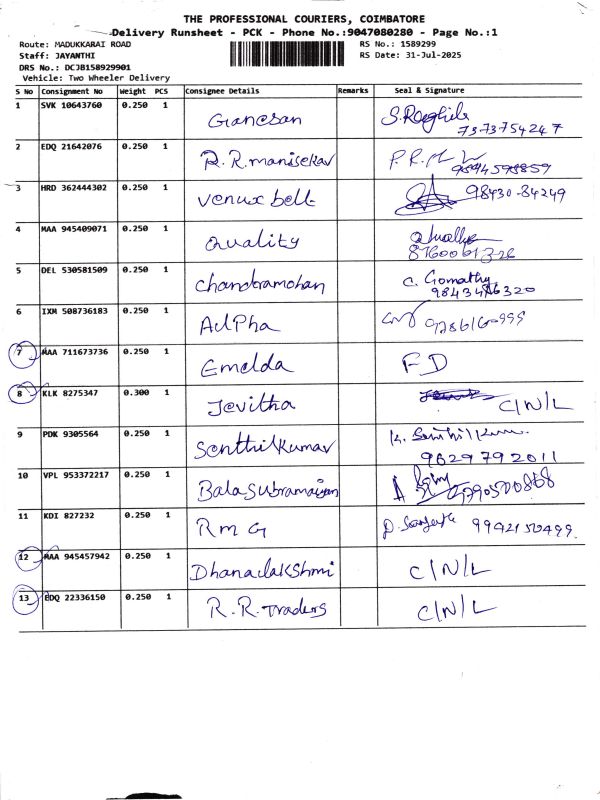 THE PROFESSIONAL COURIERS, COIMBATORE
Delivery Runsheet - PCK - Phone No.:9047080280 - Page No.:1
Route: MADUKKARAI ROAD
RS No.: 1589299
Staff: JAYANTHI
RS Date: 31-Jul-2025
DRS No.: DCJB158929901
Vehicle: Two Wheeler Delivery
S No Consignment No Weight PCS Consignee Details Remarks Seal & Signature
1 SVK 10643760 0.250 1 Ganesan
7373754247
2 EDQ 21642076 0.250 1 R.R.manisekar
3 HRD 362444302 0.250 1 venux bell 98430-84249
4 MAA 945409071 0.250 1 Quality
5 DEL 530581509 0.250 1 chandramohan C. Gomathy
6 IXM 508736183 0.250 1 AlPha
7 MAA 711673736 0.250 1 Emelda FD
8 KLK 8275347 0.300 1 Jevitha C/N/L
9 PDK 9305564 0.250 1 Senthilkumar
9629792011
10 VPL 953372217 0.250 1 Bala Subramaiyan
11 KDI 827232 0.250 1 RMG
12 MAA 945457942 0.250 1 Dhanalakshmi C/N/L
13 EDQ 22336150 0.250 1 R.R.Traders C/N/L